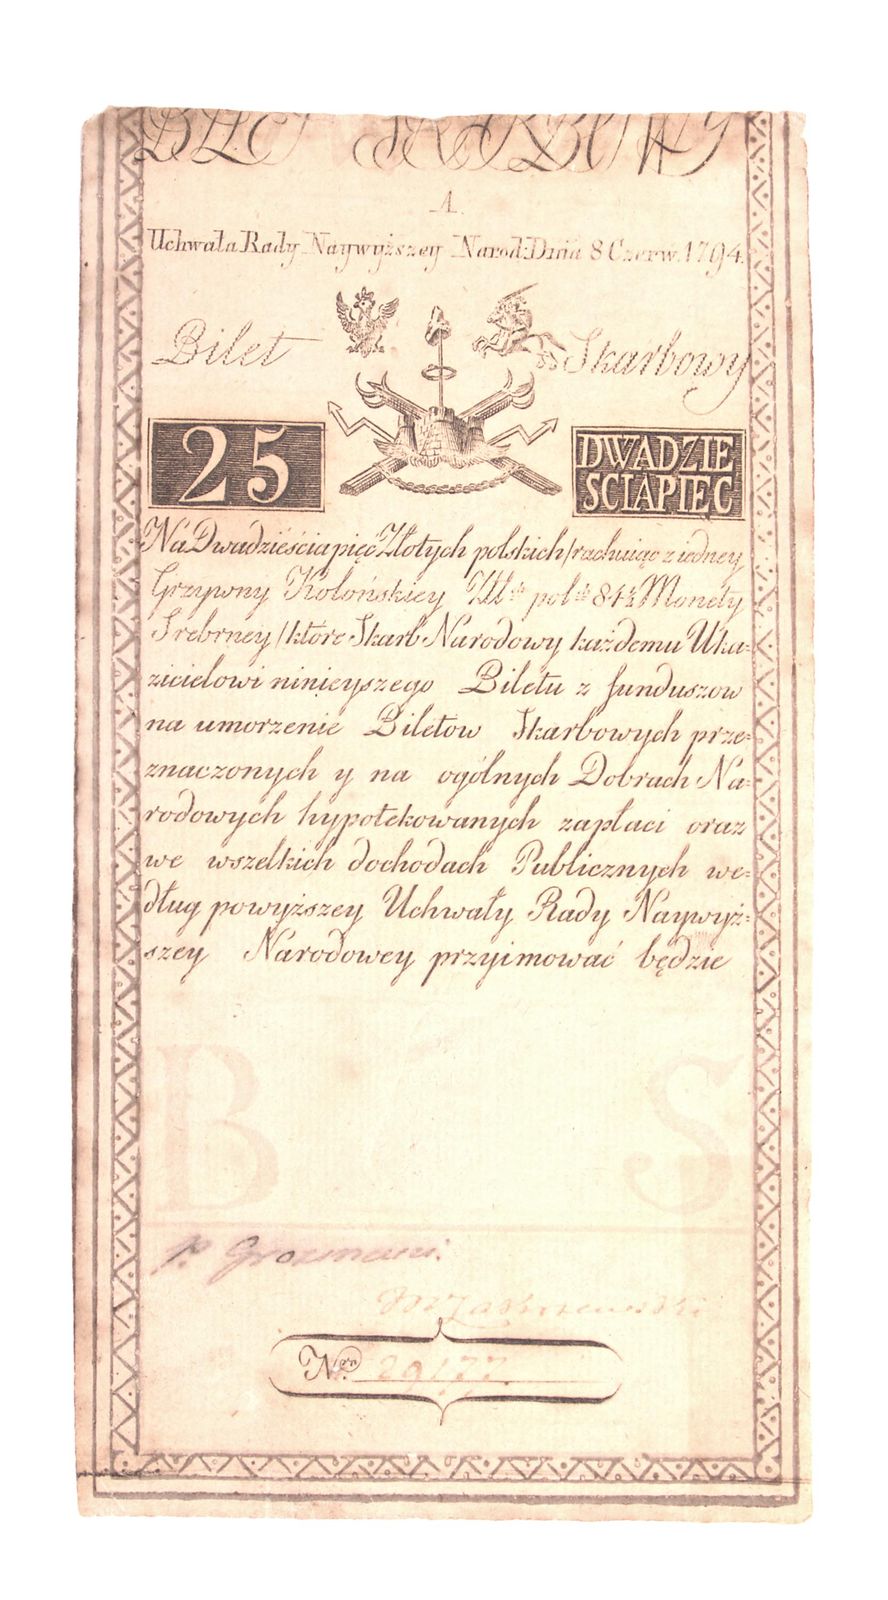 BILET SKARBOWY
A.
Uchwała Rady Naywyższey Narod: Dnia 8 Czerw. 1794.
Bilet Skarbowy
25 DWADZIE
SCIAPIEC
Na Dwadzieściapięć Złotych polskich /rachuiąc z iedney
Grzywny Kolońskiey Złł:ch pol:ch 84½ Monety
Srebrney/ które Skarb Narodowy każdemu Uka=
zicielowi ninieyszego Biletu z funduszow
na umorzenie Biletow Skarbowych prze=
znaczonych y na ogólnych Dobrach Na=
rodowych hypotekowanych zapłaci oraz
we wszelkich dochodach Publicznych we=
dług powyższey Uchwały Rady Naywyż=
szey Narodowey przyimować będzie
B S
Nro 29177.